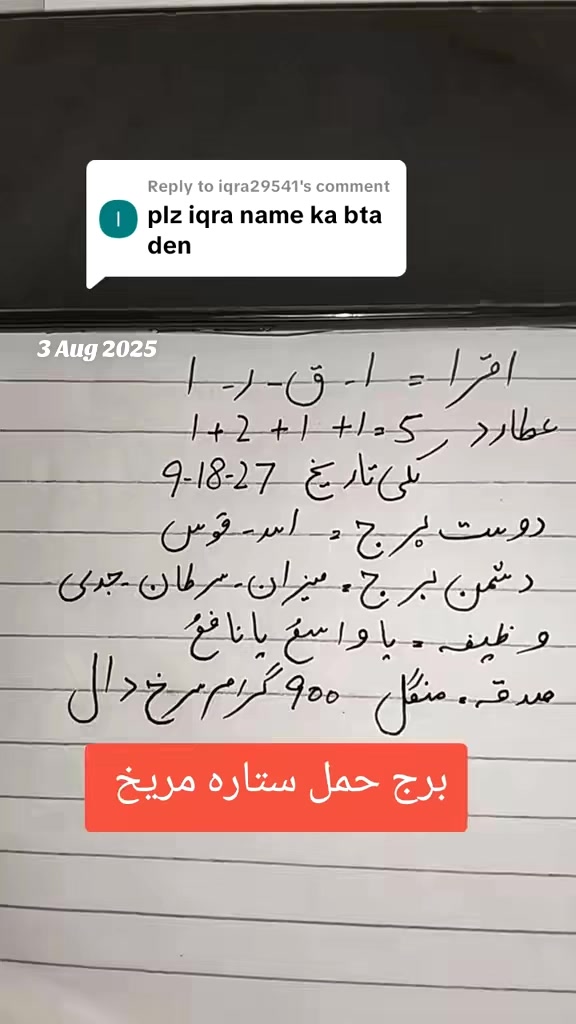 Reply to iqra29541's comment
I
plz iqra name ka bta
den
3 Aug 2025
اقرا = ا - ق - ر - ا
عطارد 5 = 1 + 1 + 2 + 1
لکی تاریخ 27-18-9
دوست برج = اسد - قوس
دشمن برج = میزان - سرطان - جدی
وظیفہ = یا واسعُ یا نافعُ
صدقہ = منگل 900 گرام سرخ دال
برج حمل ستارہ مریخ